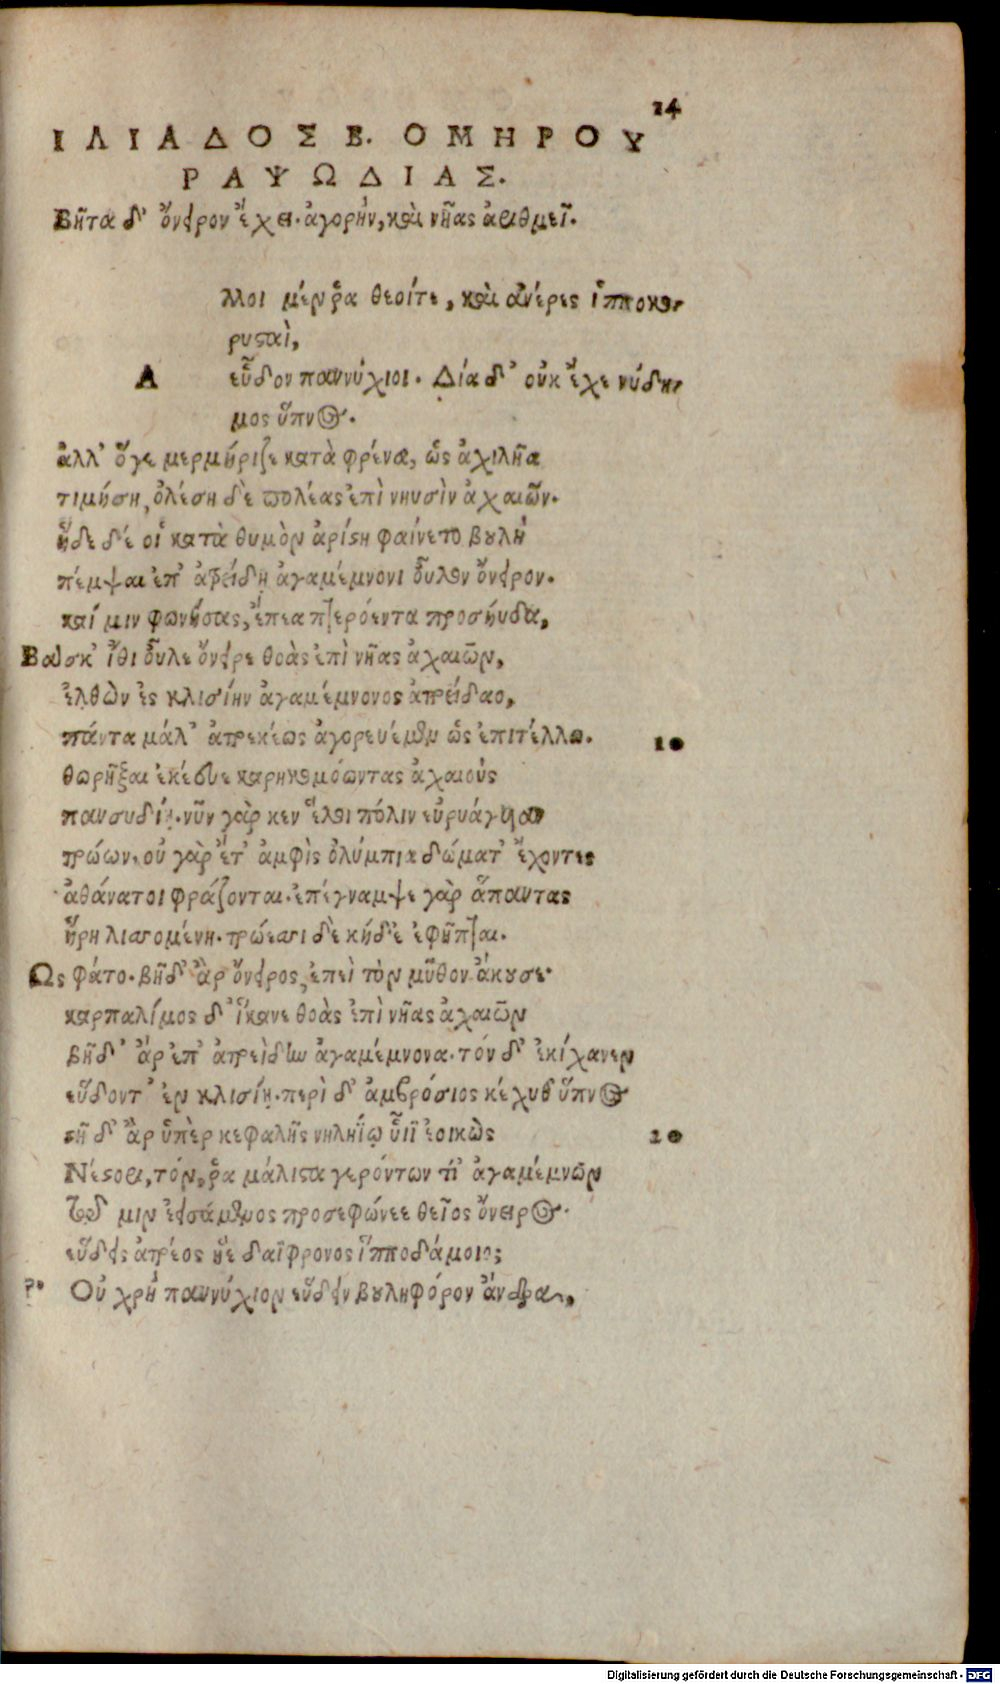 24
ΙΛΙΑΔΟΣ Β. ΟΜΗΡΟΥ
ΡΑΨΩΔΙΑΣ.
Βῆτα δ' ὄνειρον ἔχει. ἀγορήν, καὶ νῆας ἀριθμεῖ.
λλοι μέν ῥα θεοίτε, καὶ ἀνέρες ἱπποκο-
ρυσταὶ,
Α εὗδον παννύχιοι. Δία δ' οὐκ ἔχε νήδυ-
μος ὕπνος.
ἀλλ' ὅγε μερμήριζε κατὰ φρένα, ὡς ἀχιλῆα
τιμήση, ὀλέση δὲ πολέας ἐπὶ νηυσὶν ἀχαιῶν.
ἥδε δέ οἱ κατὰ θυμὸν ἀρίστη φαίνετο βουλὴ
πέμψαι ἐπ' ἀτρείδῃ ἀγαμέμνονι οὖλον ὄνειρον.
καί μιν φωνήσας, ἔπεα πτερόεντα προσηύδα,
Βάσκ' ἴθι οὖλε ὄνειρε θοὰς ἐπὶ νῆας ἀχαιῶν,
ἐλθὼν ἐς κλισίην ἀγαμέμνονος ἀτρείδαο,
πάντα μάλ' ἀτρεκέως ἀγορευέμεν ὡς ἐπιτέλλω. 10
θωρῆξαι ἐκέλευε καρηκομόωντας ἀχαιοὺς
πανσυδίῃ. νῦν γὰρ κεν ἕλοι πόλιν εὐρυάγυιαν
τρώων. οὐ γὰρ ἔτ' ἀμφὶς ὀλύμπια δώματ' ἔχοντες
ἀθάνατοι φράζονται. ἐπέγναμψε γὰρ ἅπαντας
ἥρη λισσομένη. τρώεσσι δὲ κήδε' ἐφῆπται.
Ὣς φάτο. βῆ δ' ἂρ ὄνειρος, ἐπεὶ τὸν μῦθον ἄκουσε.
καρπαλίμος δ' ἵκανε θοὰς ἐπὶ νῆας ἀχαιῶν
βῆ δ' ἄρ ἐπ' ἀτρείδην ἀγαμέμνονα. τόν δ' ἐκίχανεν
εὕδοντ' ἐν κλισίῃ. περὶ δ' ἀμβρόσιος κέχυθ' ὕπνος
στῆ δ' ἂρ ὑπὲρ κεφαλῆς νηληΐῳ υἷϊ ἐοικὼς 20
Νέστορι, τόν, ῥα μάλιστα γερόντων τῖ' ἀγαμέμνων
τῷ μιν ἐεισάμενος προσεφώνεε θεῖος ὄνειρος.
εὕδεις ἀτρέος ὑὲ δαΐφρονος ἱπποδάμοιο;
Οὐ χρὴ παννύχιον εὕδειν βουληφόρον ἄνδρα,
Digitalisierung gefördert durch die Deutsche Forschungsgemeinschaft - DFG